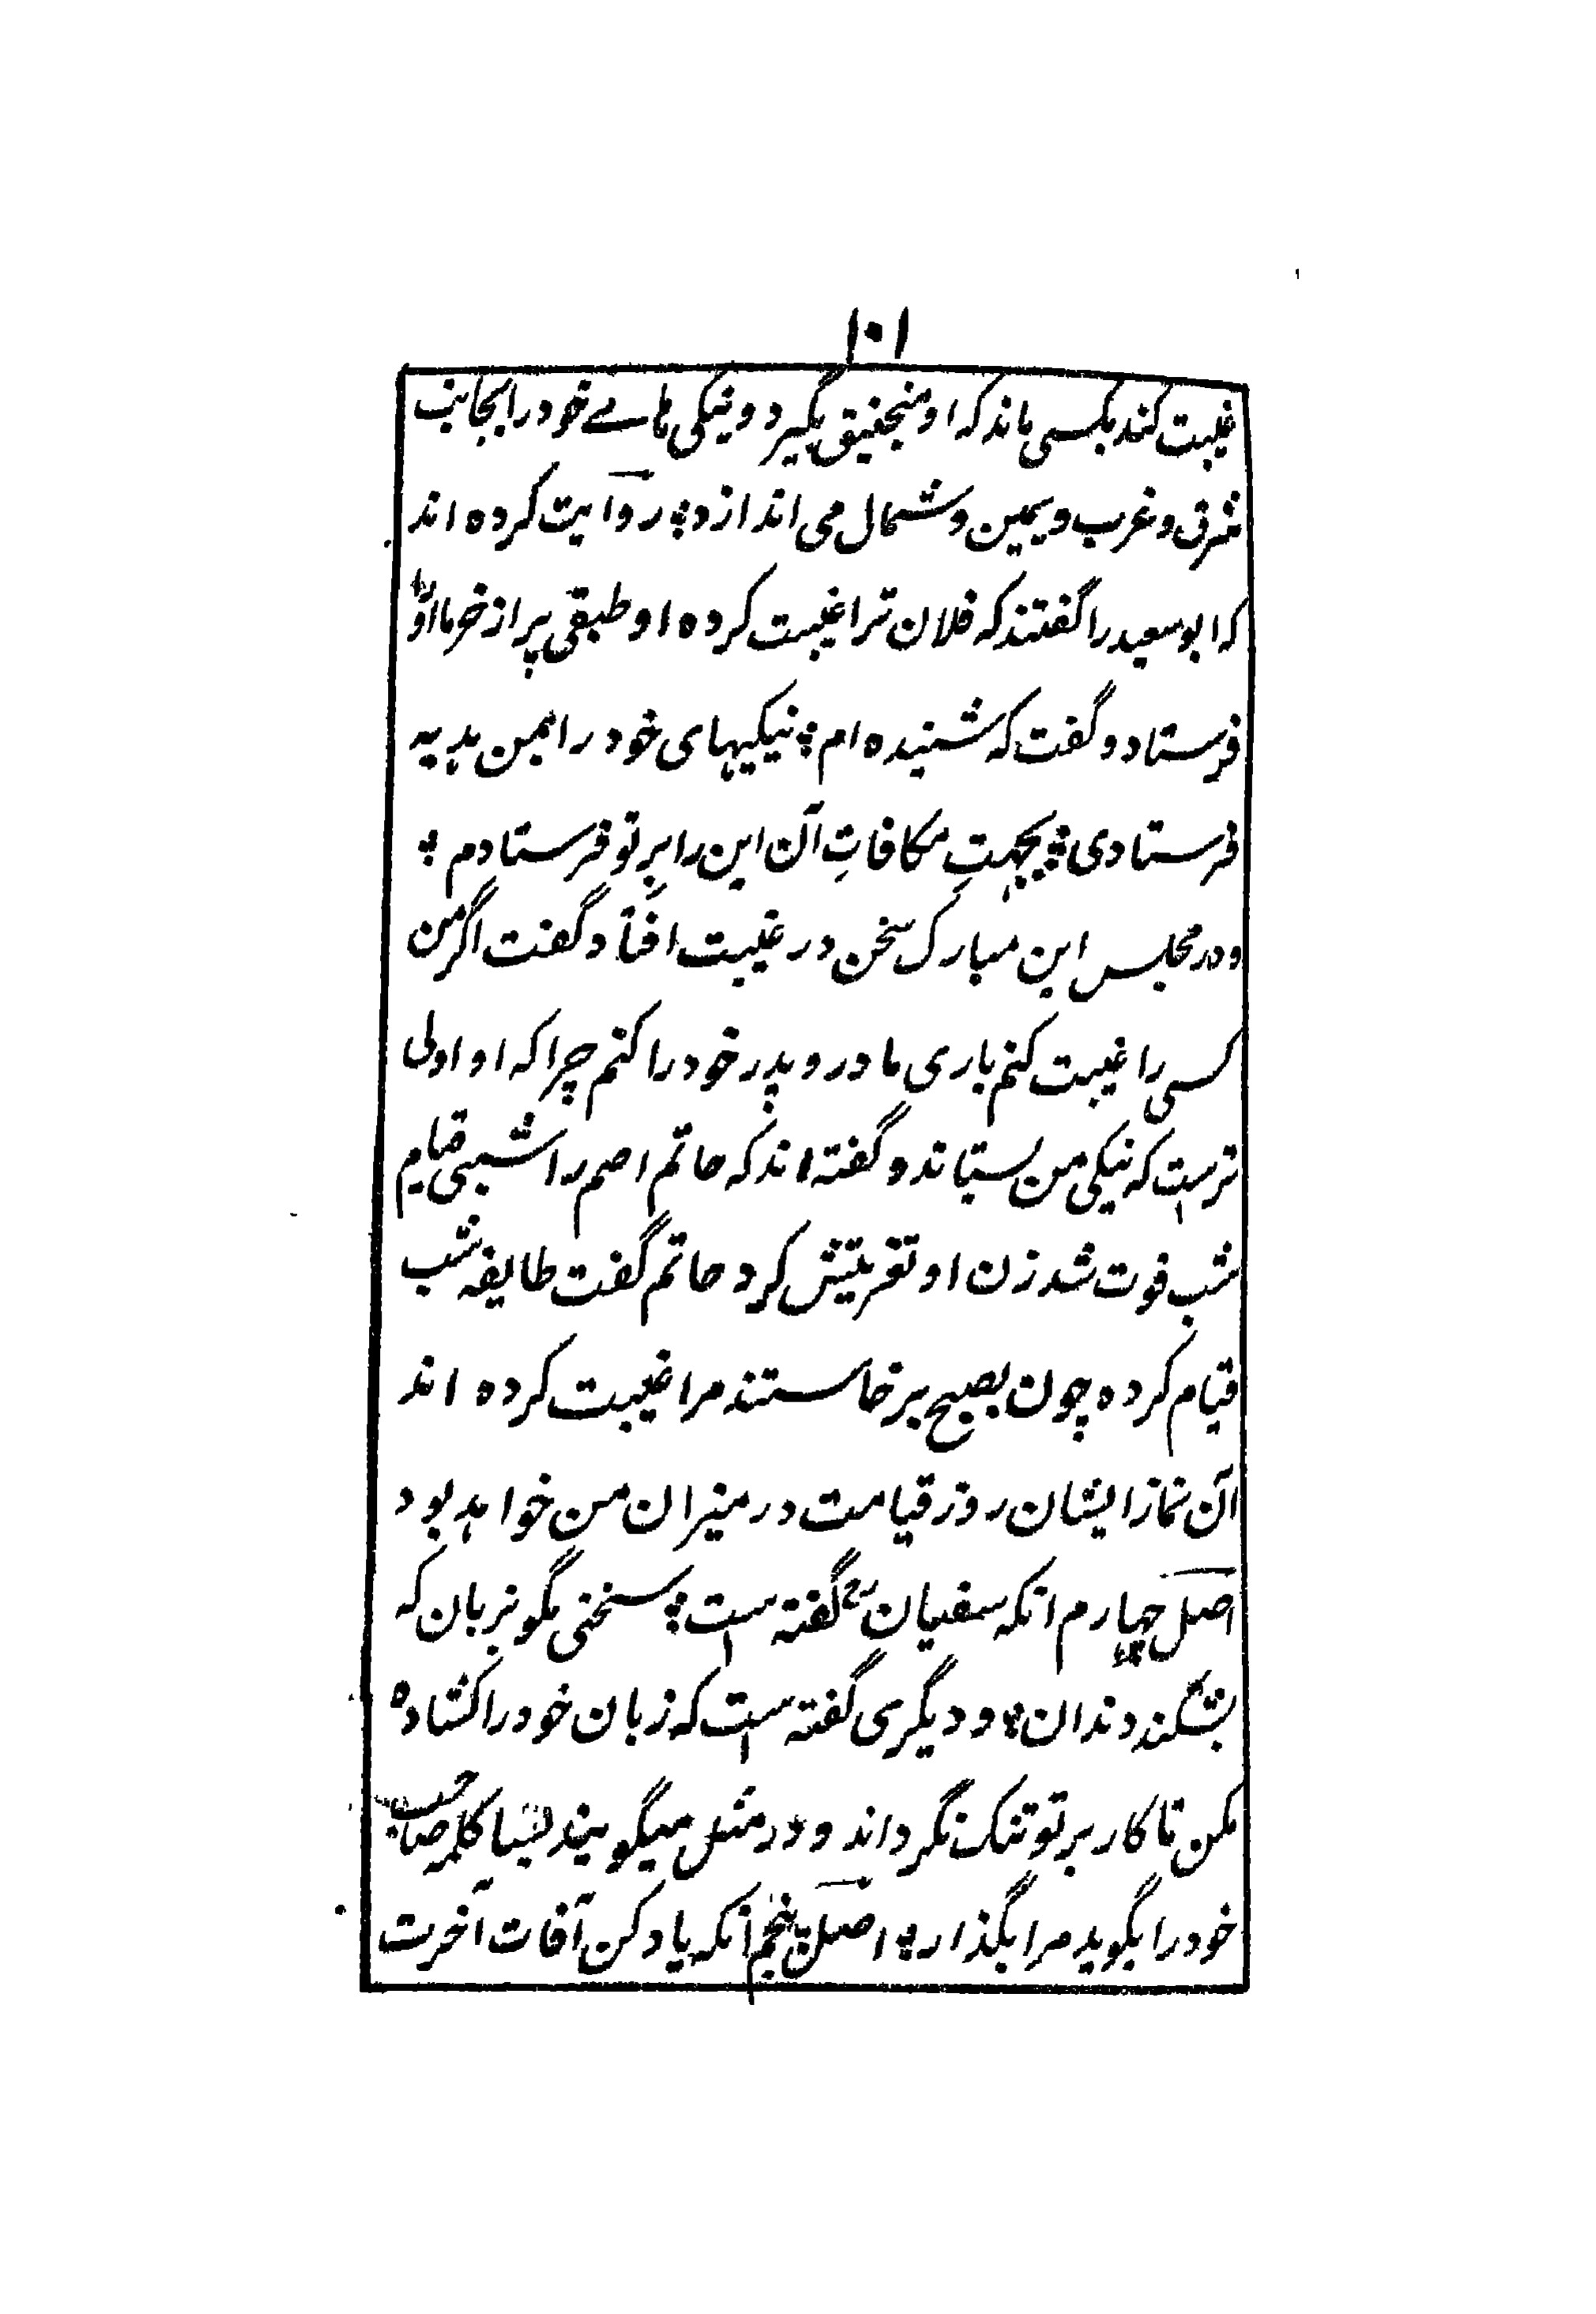 ۱۰۱
غیبت کند بکسی ماند که او منجنیق بگیرد و نیکی هاے خود را بجانب
شرق و غرب و یمین و شمال می اندازد؛ روایت کرده اند
که ابو سعید را گفتند که فلان ترا غیبت کرده او طبقی پر از خرما او را
فرستاد و گفت که شنیده ام؛ نیکیهای خود را بمن هدیه
فرستادی؛ بجهتِ مکافاتِ آن این را برِ تو فرستادم؛
و در مجلس ابن مبارک سخن در غیبت افتاد گفت اگر من
کسی را غیبت کنم باری مادر و پدر خود را کنم چرا که او اولی
ترست که نیکی من بستاند و گفته اند که حاتم اصم را شبی قیام
شب فوت شد زن او تعزیتش کرد حاتم گفت طایفه شب
قیام کرده چون بصبح برخاستند مرا غیبت کرده اند
آن نماز ایشان روز قیامت در میزان من خواهد بود
اصل چهارم انکه سفیان رح گفته است؛ سخنی مگو بزبان که
بشکند دندان؛ و دیگری گفته است که زبان خود را کشاده
مکن تا کار بر تو تنک نگرداند و در مثل میگویند بسا کلمه صاحب
خود را بگوید مرا بگذار؛ اصل پنجم انکه یاد کن آفات آخرت